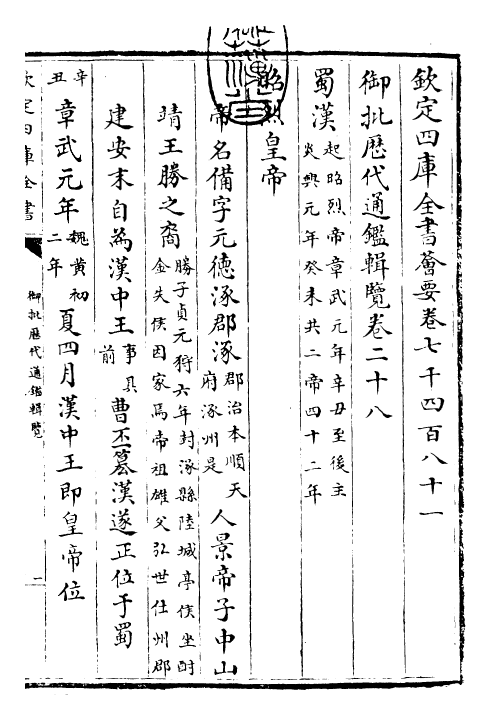 欽定四庫全書薈要卷七千四百八十一
御批歷代通鑑輯覽卷二十八
蜀漢起昭烈帝章武元年辛丑至後主炎興元年癸未共二帝四十二年
昭烈皇帝
帝名備字元德涿郡涿郡治本順天府涿州是人景帝子中山
靖王勝之裔勝子貞元狩六年封涿縣陸城亭侯坐酎金失侯因家焉帝祖雄父弘世仕州郡
建安末自為漢中王事具前曹丕簒漢遂正位于蜀
辛丑章武元年魏黃初二年夏四月漢中王即皇帝位
欽定四庫全書
御批歷代通鑑輯覽
一